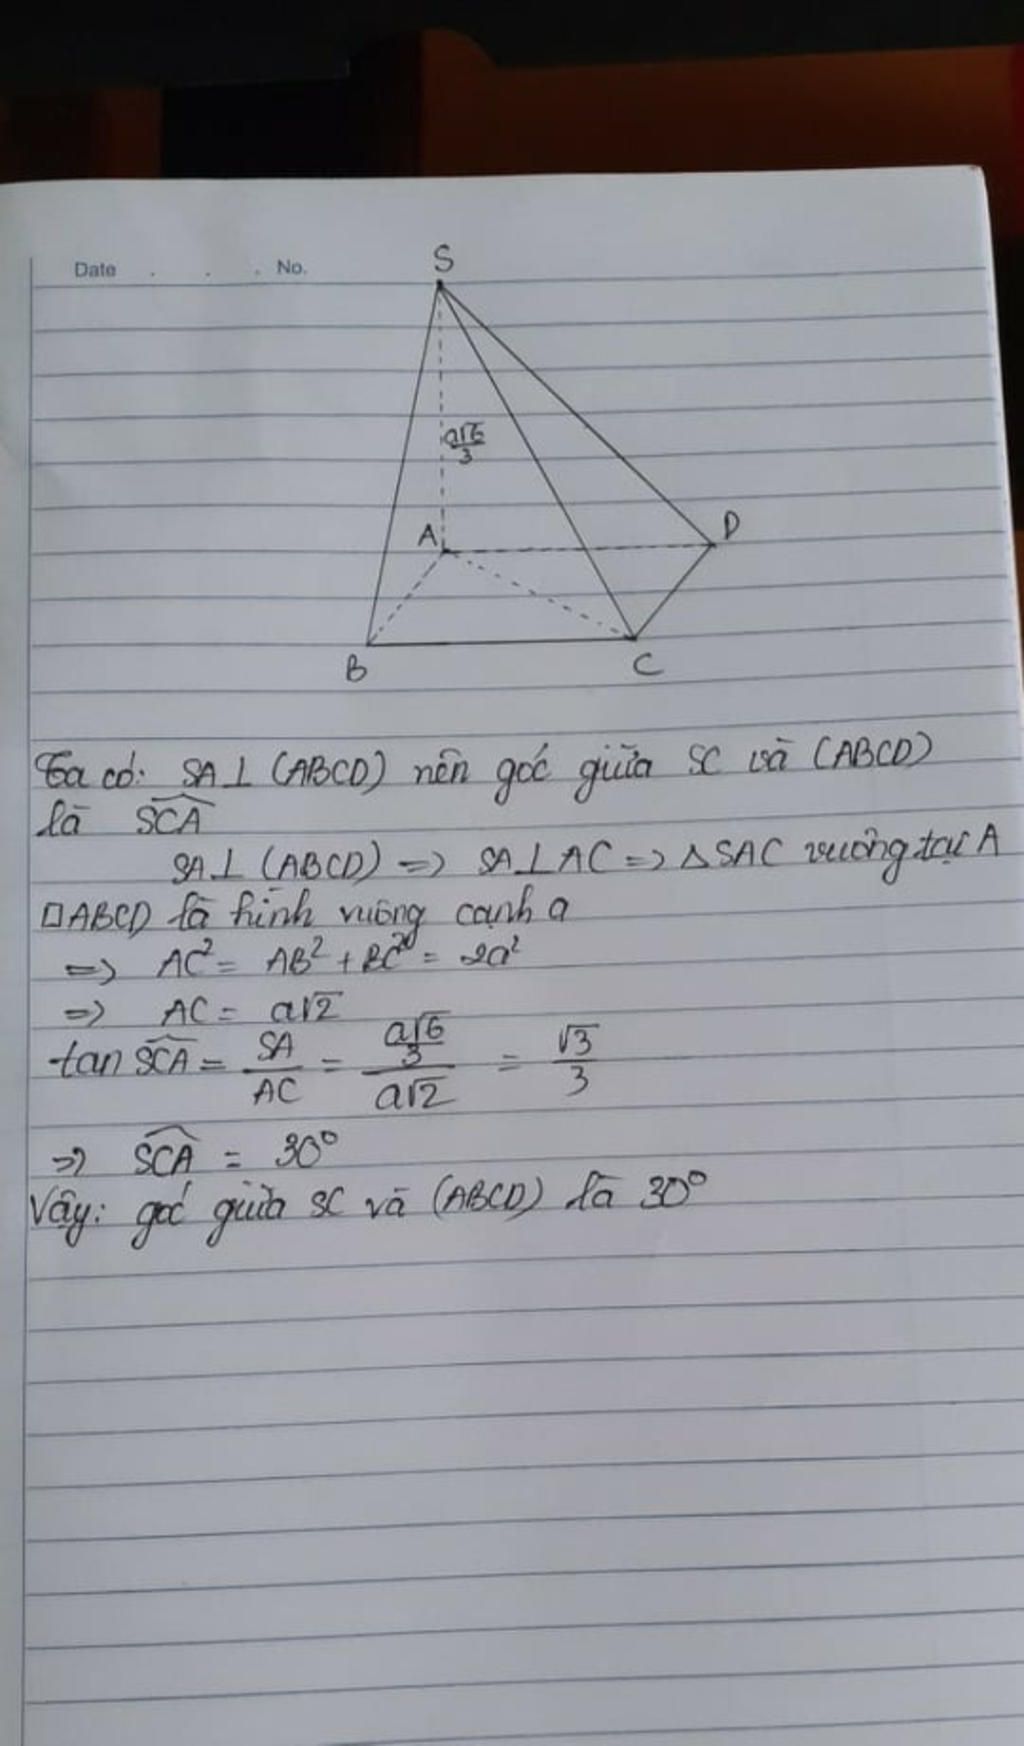 Date . . . No.
S
a√6/3
A
D
B
C
Ta có: SA⊥(ABCD) nên góc giữa SC và (ABCD)
là SCA
SA⊥(ABCD) => SA⊥AC => △SAC vuông tại A
□ABCD là hình vuông cạnh a
=> AC² = AB² + BC² = 2a²
=> AC = a√2
tan SCA = SA/AC = (a√6/3)/(a√2) = √3/3
=> SCA = 30°
Vậy: góc giữa SC và (ABCD) là 30°